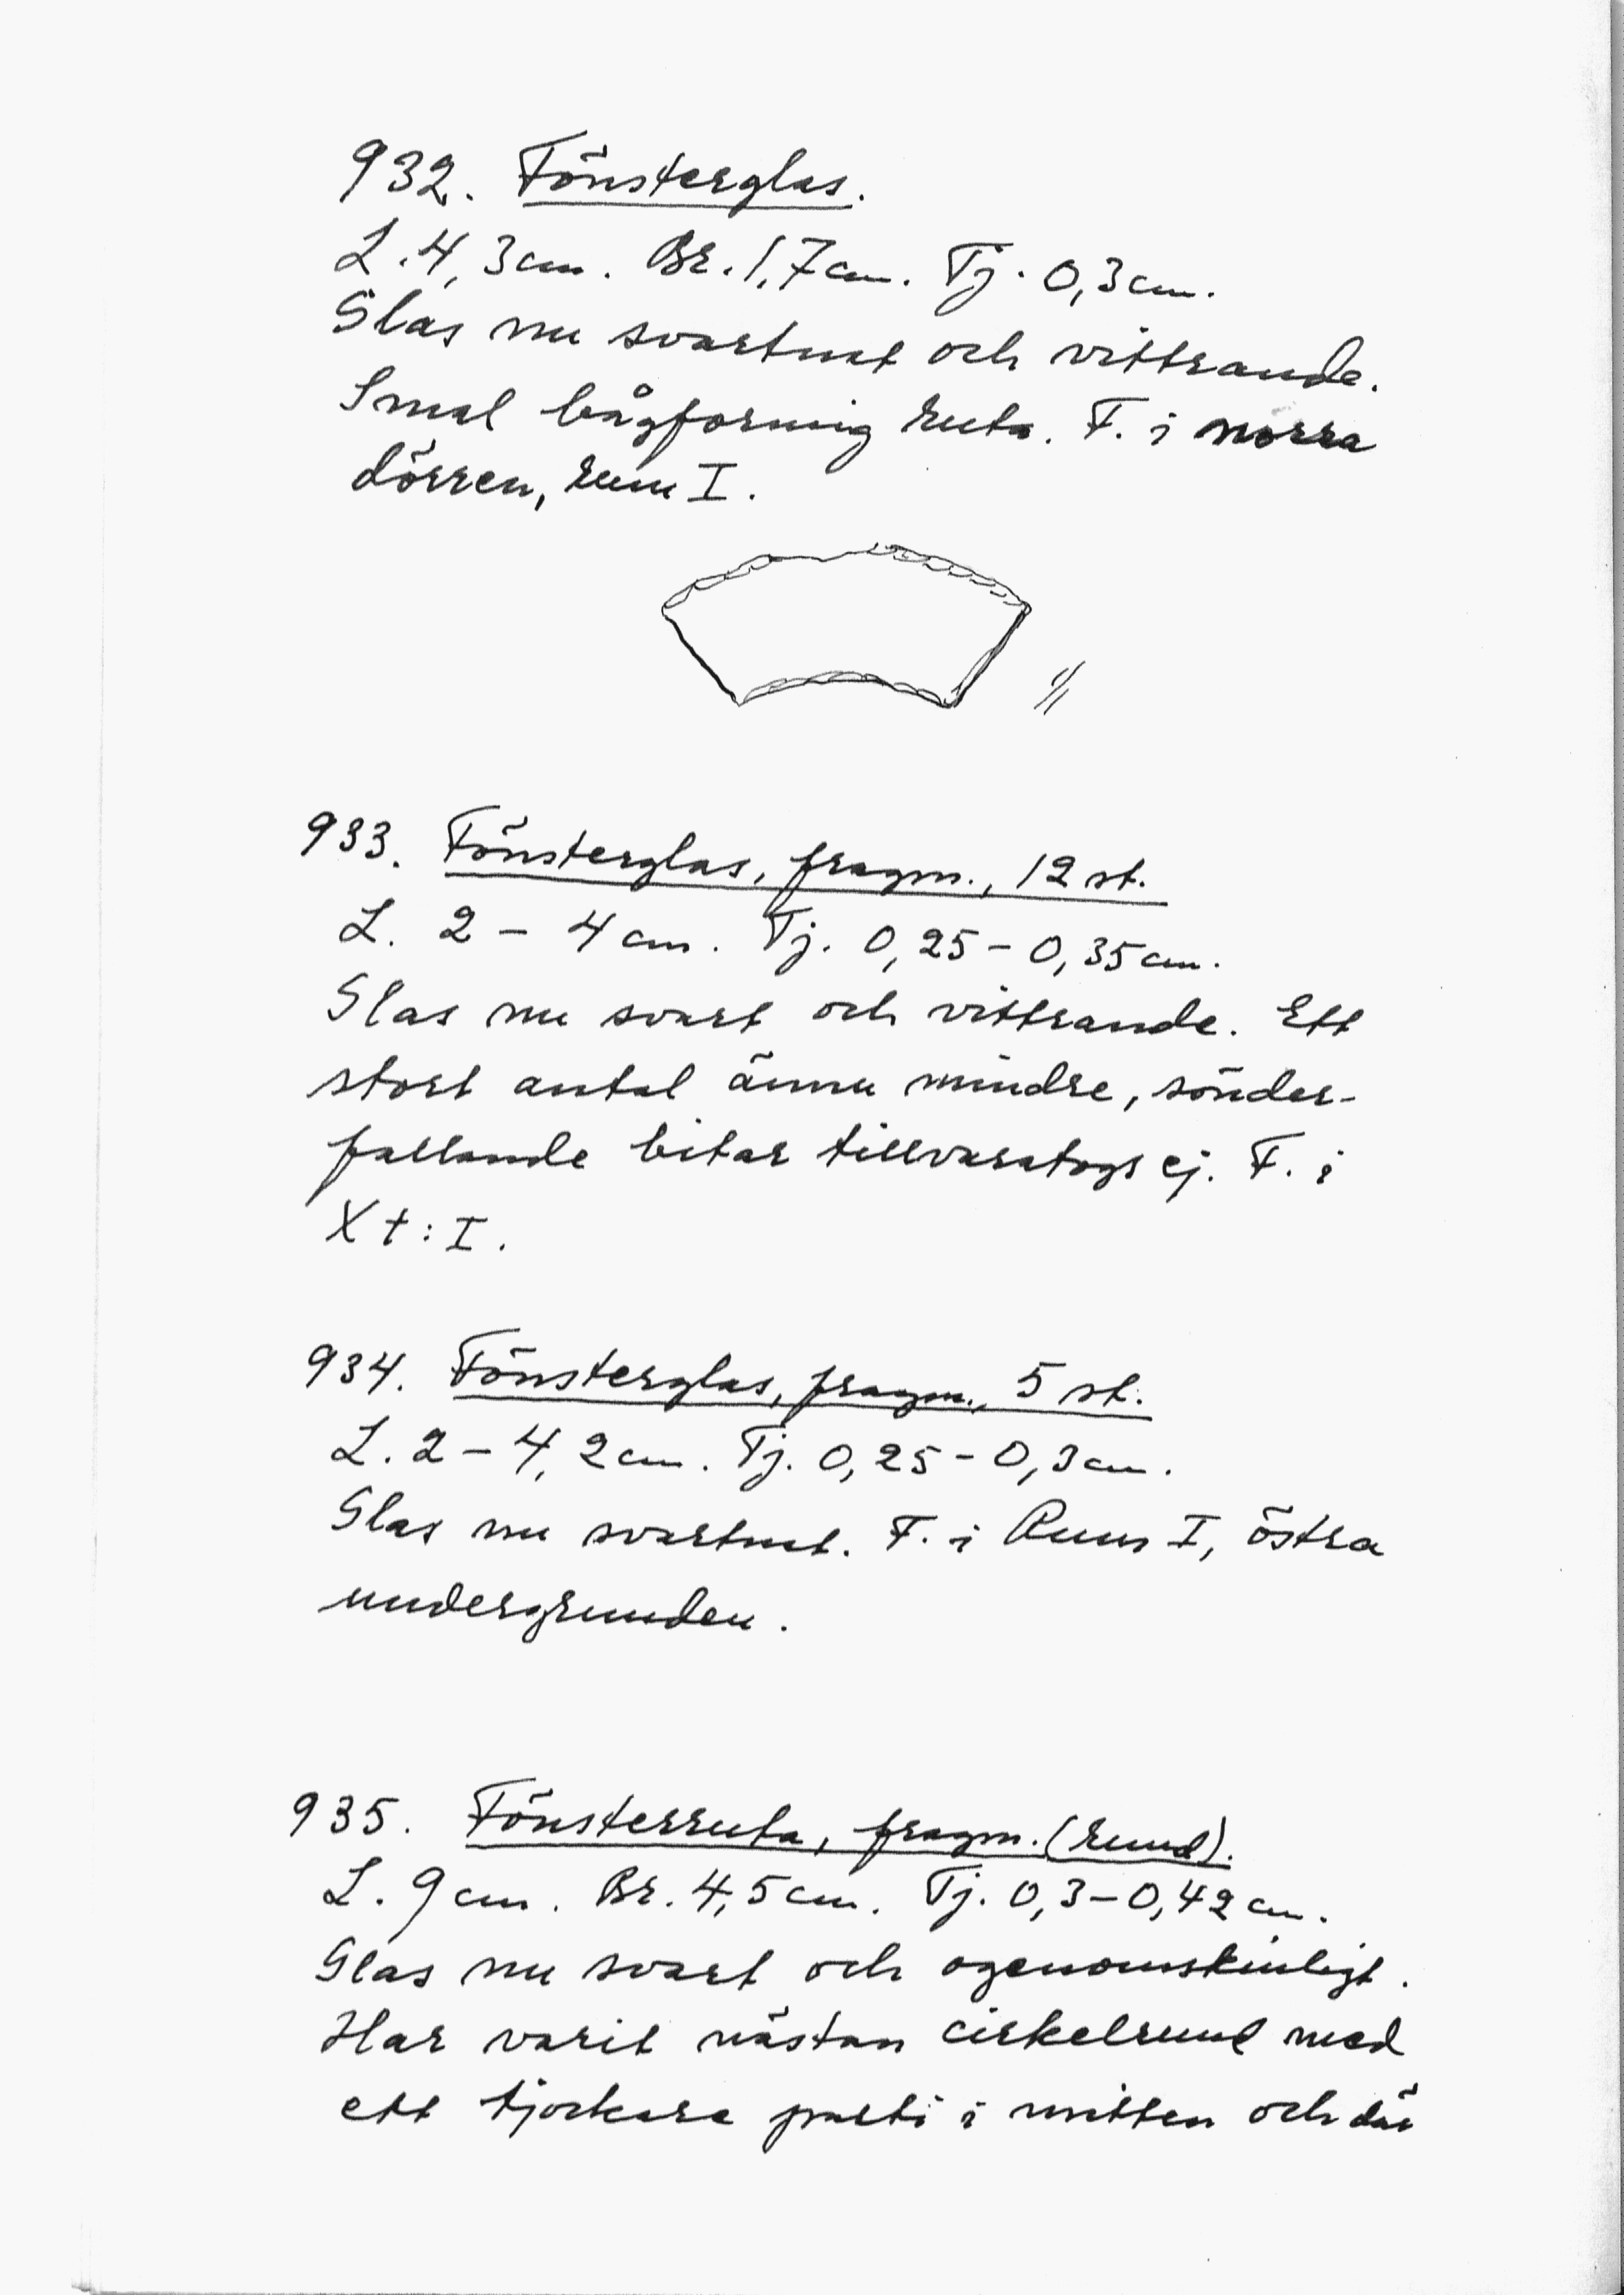 932. Fönsterglas.
L. 4,3 cm. Br. 1,7 cm. Tj. 0,3 cm.
Glas nu svartnat och vittrande.
Smal bågformig ruta. F. i norra
dörren, rum I.
1/1
933. Fönsterglas, fragm., 12 st.
L. 2 - 4 cm. Tj. 0,25 - 0,35 cm.
Glas nu svart och vittrande. Ett
stort antal ännu mindre, sönder-
fallande bitar tillvaratogs ej. F. i
X t : I.
934. Fönsterglas, fragm., 5 st.
L. 2 - 4,2 cm. Tj. 0,25 - 0,3 cm.
Glas nu svartnat. F. i Rum I, östra
undergrunden.
935. Fönsterruta, fragm. (rund).
L. 9 cm. Br. 4,5 cm. Tj. 0,3 - 0,42 cm.
Glas nu svart och ogenomskinligt.
Har varit nästan cirkelrund med
ett tjockare parti i mitten och där